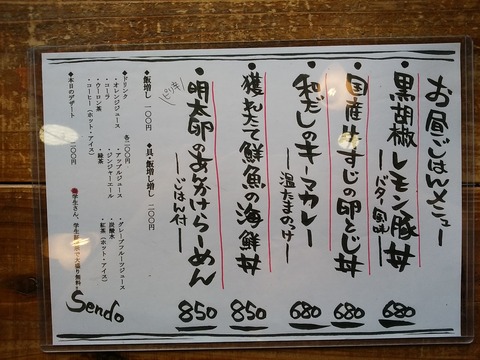 お昼ごはんメニュー
・黒胡椒レモン豚丼
―バター風味―
680
・国産牛すじの卵とじ丼
680
・和だしのキーマカレー
―温たまのっけ―
680
・獲れたて鮮魚の海鮮丼
850
・明太卵のあんかけらーめん
ピリ辛
―ごはん付―
850
◆飯増し 一〇〇円
◆具・飯増し増し 二〇〇円
◆ドリンク 各二〇〇円
・オレンジジュース
・アップルジュース
・グレープフルーツジュース
・コーラ
・ジンジャーエール
・炭酸水
・ウーロン茶
・緑茶
・紅茶（ホット・アイス）
・コーヒー（ホット・アイス）
◆本日のデザート 二〇〇円
学生さん、学生証提示で大盛り無料
Sendo